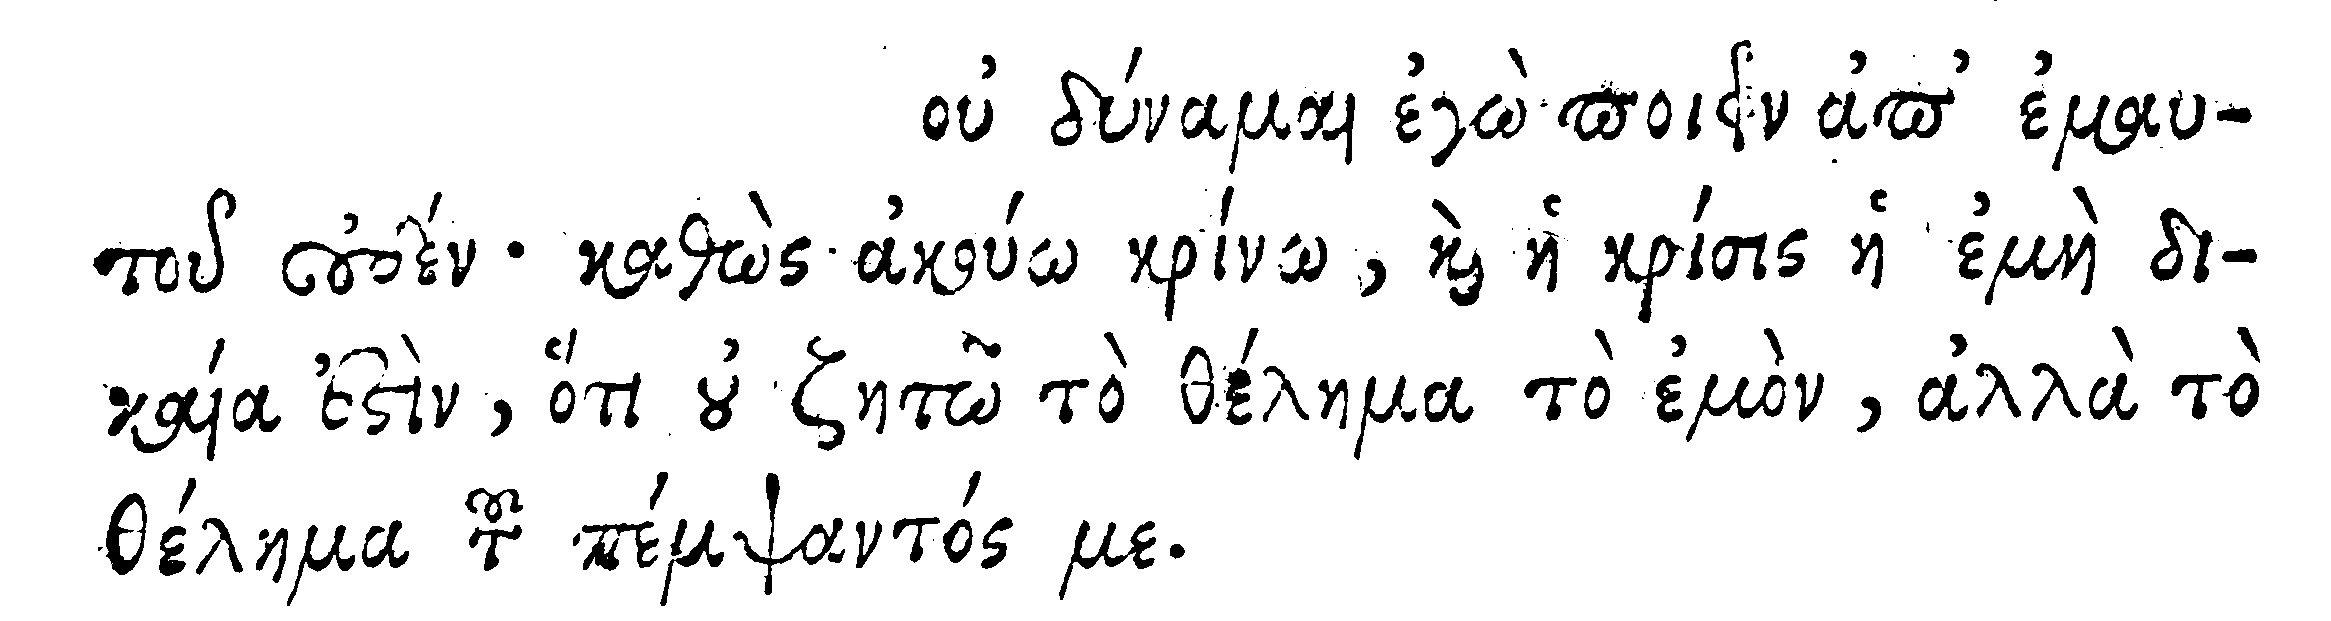 οὐ δύναμαι ἐγὼ ποιεῖν ἀπ' ἐμαυ-
τοῦ οὐδέν· καθὼς ἀκούω κρίνω, καὶ ἡ κρίσις ἡ ἐμὴ δι-
καία ἐστὶν, ὅτι οὐ ζητῶ τὸ θέλημα τὸ ἐμὸν, ἀλλὰ τὸ
θέλημα τοῦ πέμψαντός με.